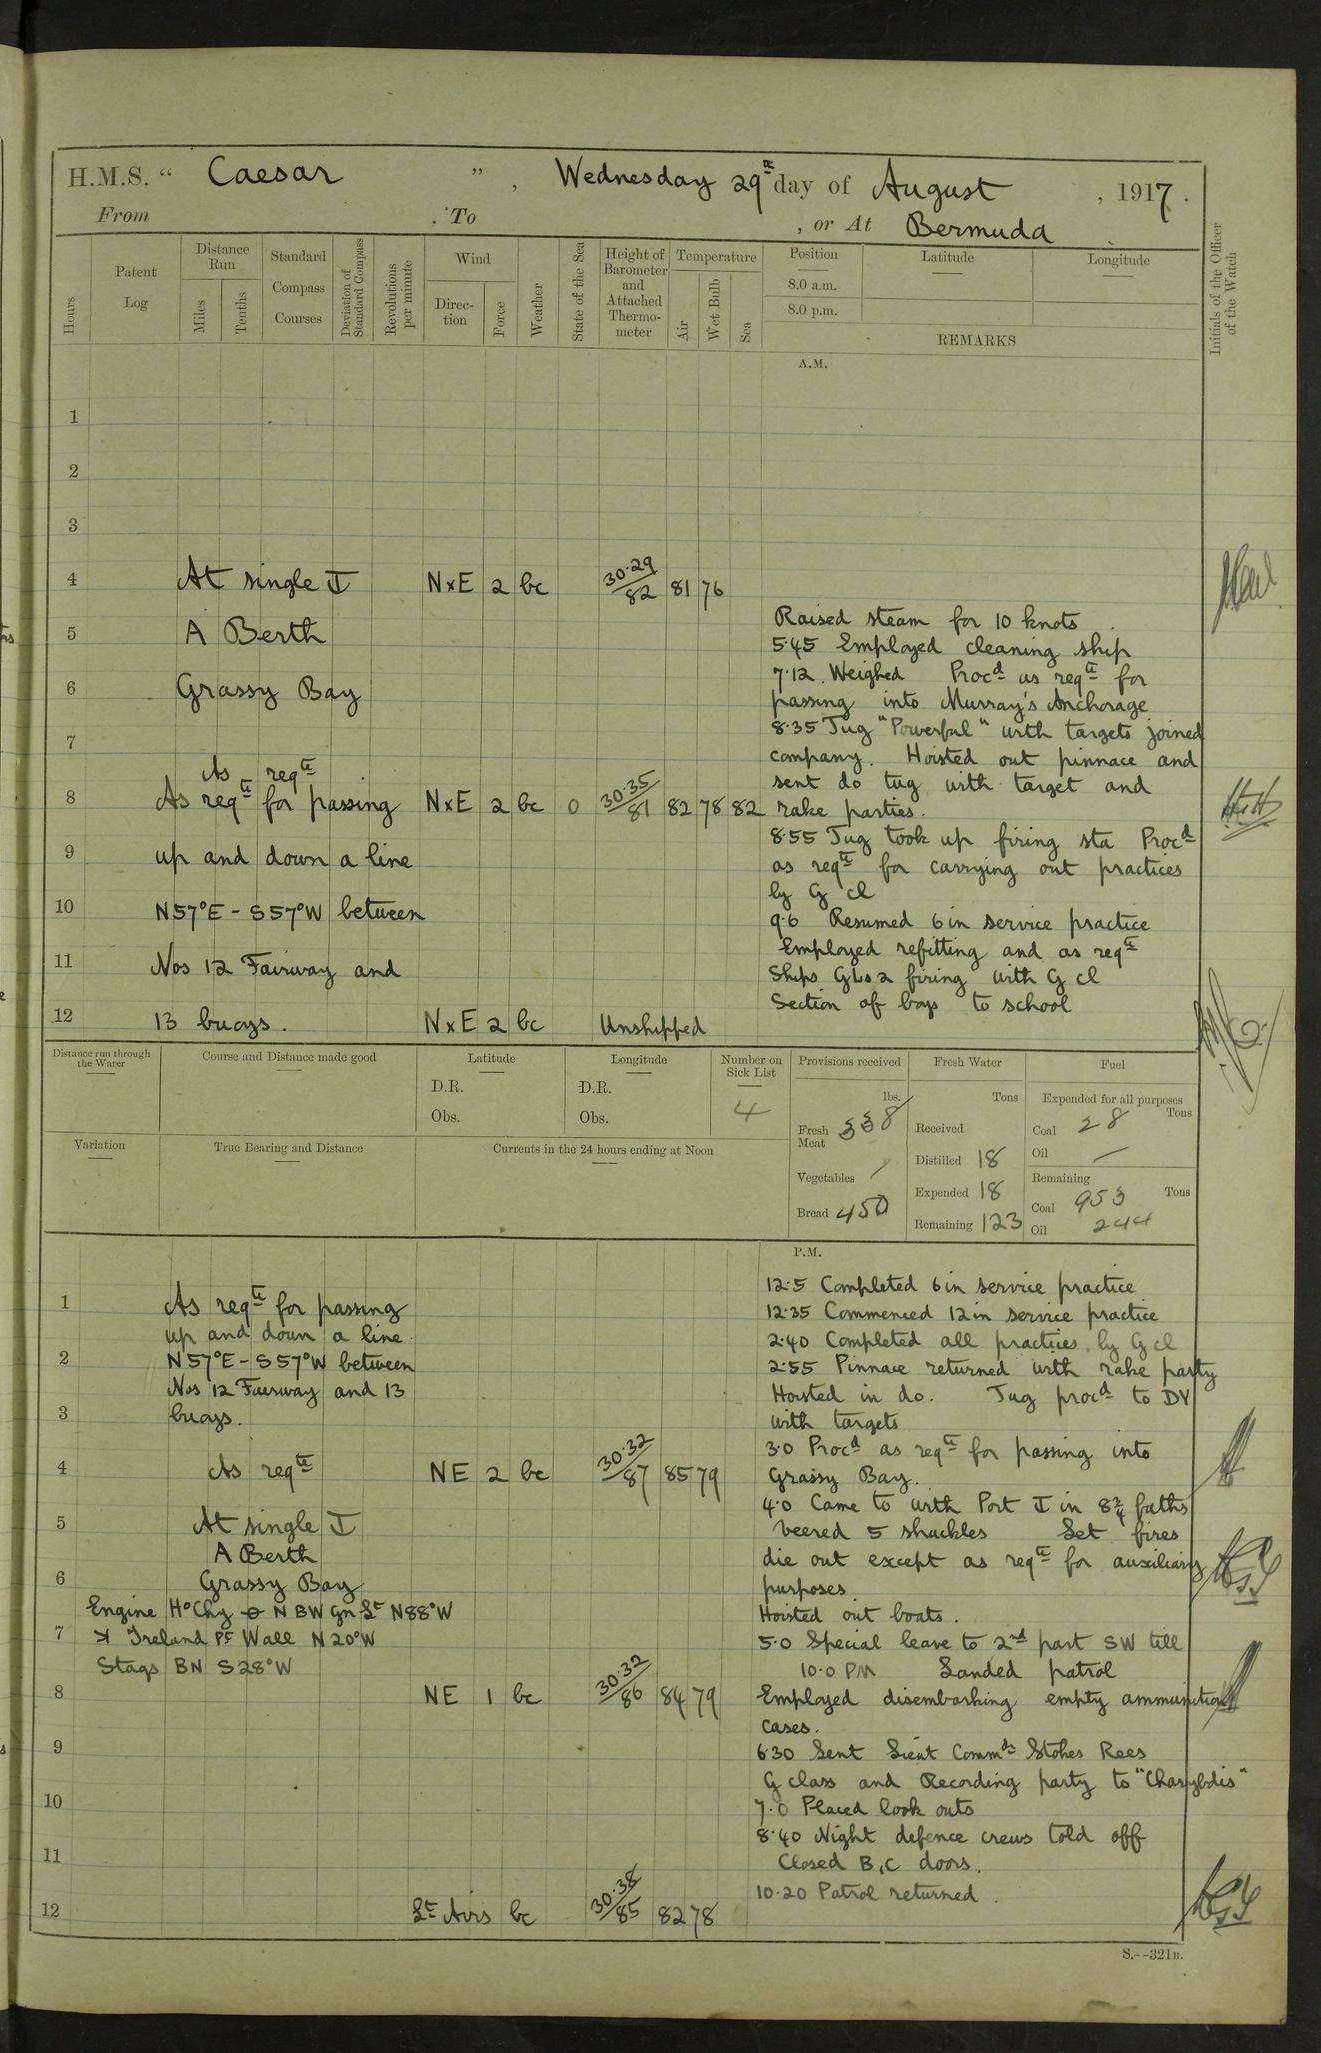 H.M.S. “ Caesar ” , Wednesday 29th day of August , 1917.
From . To , or At Bermuda
Hours
Patent Log
Distance Run
Miles
Tenths
Standard Compass Courses
Deviation of Standard Compass
Revolutions per minute
Wind
Direc-tion
Force
Weather
State of the Sea
Height of Barometer and Attached Thermo-meter
Temperature
Air
Wet Bulb
Sea
Position
8.0 a.m.
8.0 p.m.
Latitude
Longitude
REMARKS
Initials of the Officer of the Watch
A.M.
1
2
3
4 At single NxE 2 bc 30.29/82 81 76
5 A Berth
6 Grassy Bay
7
As reqte
8 As reqte for passing NxE 2 bc 0 30.35/81 82 78 82
9 up and down a line
10 N57°E - S57°W between
11 Nos 12 Fairway and
12 13 buoys. NxE 2 bc Unshipped
Raised steam for 10 knots
5.45 Employed cleaning ship
7.12. Weighed Procd as reqte for
passing into Murray's Anchorage
8.35 Tug "Powerful" with targets joined
company. Hoisted out pinnace and
sent do tug with target and
rake parties.
8.55 Tug took up firing sta Procd
as reqte for carrying out practices
by G cl
9.6 Resumed 6in service practice
Employed refitting and as reqte
Ships GLs 2 firing with G cl
Section of boys to school
Distance run through the Water
Course and Distance made good
Latitude
D.R.
Obs.
Longitude
D.R.
Obs.
Number on Sick List
4
Provisions received
lbs.
Fresh Meat 338
Vegetables /
Bread 450
Fresh Water
Tons
Received
Distilled 18
Expended 18
Remaining 123
Fuel
Expended for all purposes
Tons
Coal 28
Oil —
Remaining
Tons
Coal 953
Oil 244
Variation
True Bearing and Distance
Currents in the 24 hours ending at Noon
P.M.
1 As reqte for passing
up and down a line
2 N57°E - S57°W between
Nos 12 Fairway and 13
3 buoys.
4 As reqte NE 2 bc 30.32/87 85 79
5 At single
A Berth
6 Grassy Bay
Engine Ho Chy N BW Gn Lt N88°W
7 Ireland Pt Wall N20°W
Stags BN S28°W
8 NE 1 bc 30.32/86 84 79
9
10
11
12 Lt Airs bc 30.38/85 82 78
12.5 Completed 6in service practice
12.35 Commenced 12in service practice
2.40 Completed all practices by G cl
2.55 Pinnace returned with rake party
Hoisted in do. Tug procd to DY
with targets
3.0 Procd as reqte for passing into
Grassy Bay.
4.0 Came to with Port in 8¾ faths
veered 5 shackles Let fires
die out except as reqte for auxiliary
purposes
Hoisted out boats.
5.0 Special leave to 2nd part SW till
10.0 PM Landed patrol
Employed disembarking empty ammunition
cases.
6.30 Sent Lieut Commdr Stokes Rees
G class and Recording party to "Charybdis"
7.0 Placed look outs
8.40 Night defence crews told off
Closed B, C doors.
10.20 Patrol returned.
S.--321B.